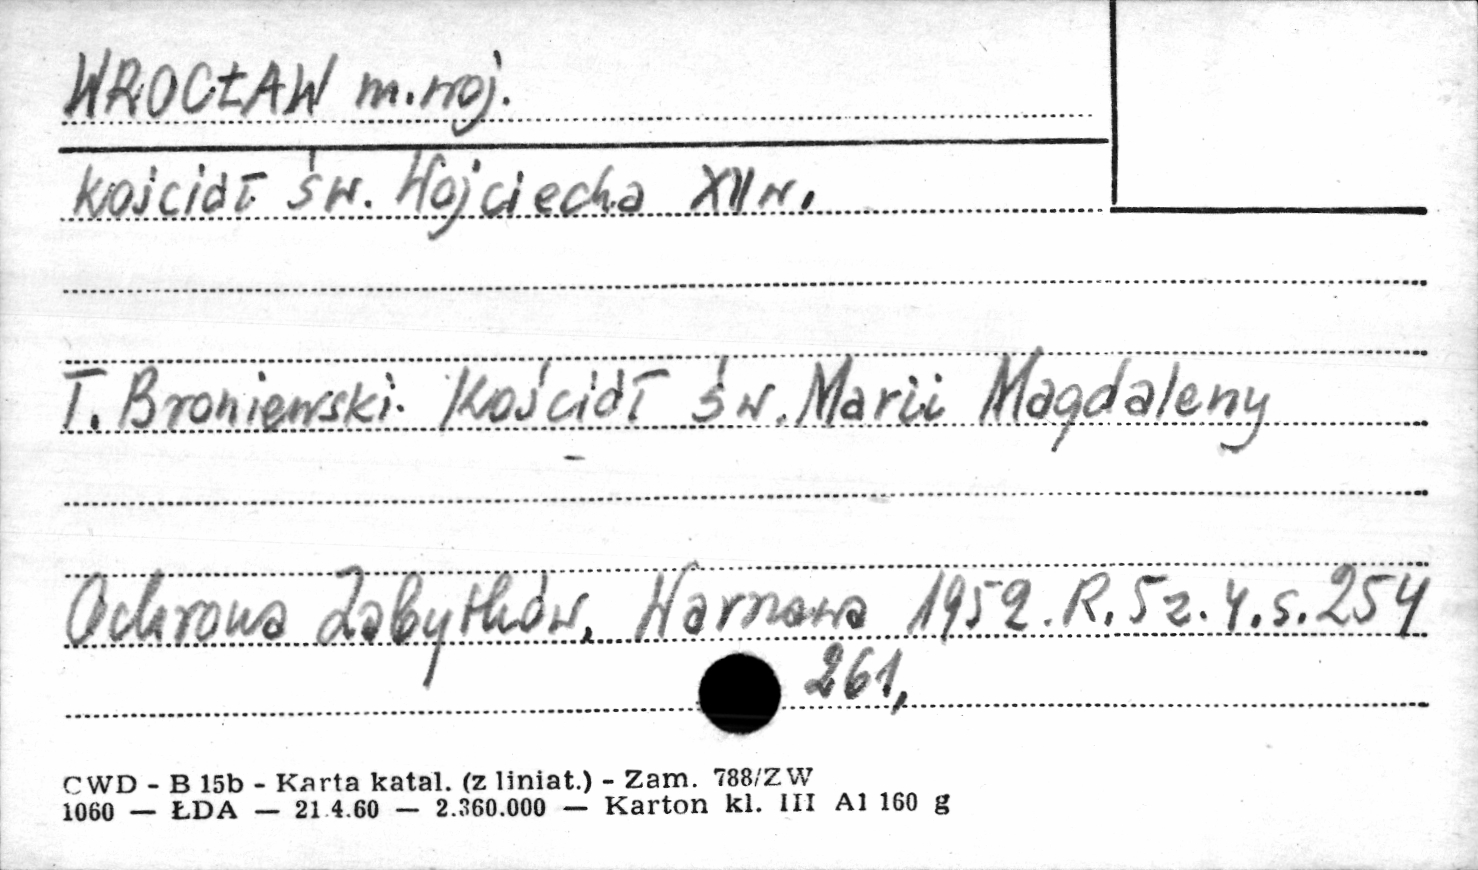 WROCŁAW m.woj.
Kościół św. Wojciecha XII w.
T. Broniewski. Kościół św. Marii Magdaleny
Ochrona Zabytków, Warszawa 1952. R. 5 z. 4. s. 254
261,
CWD - B 15b - Karta katal. (z liniat.) - Zam. 788/ZW
1060 — ŁDA — 21.4.60 — 2.360.000 — Karton kl. III A1 160 g